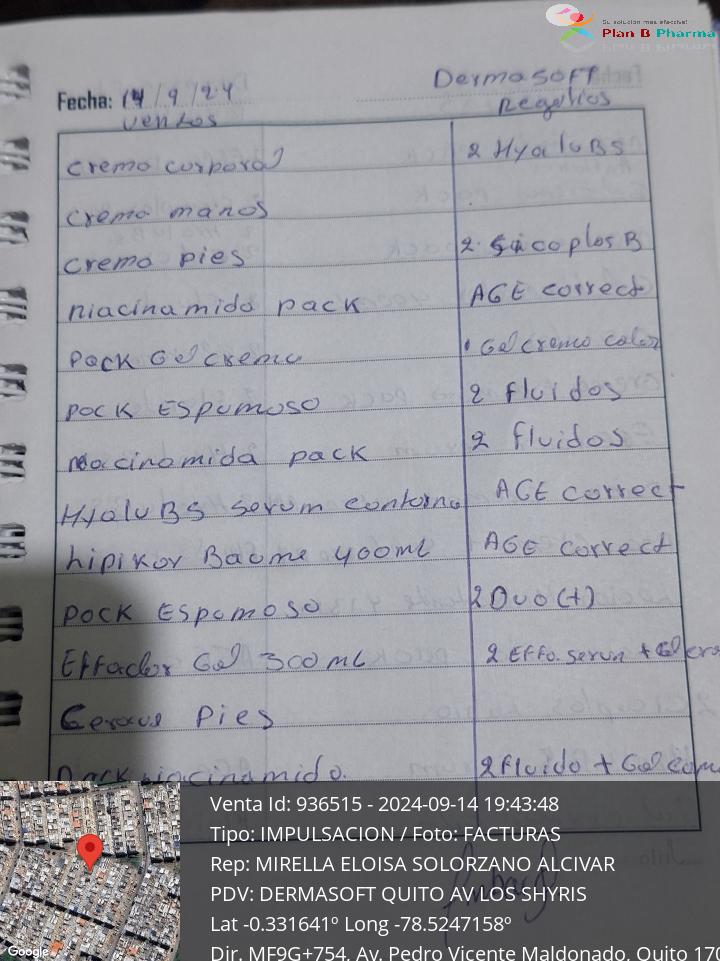 Su solución más efectiva!
Plan B Pharma
DermaSOFT
Fecha: 14/9/24 Regalios
Ventas
crema corporal 2 HyaluB5
crema manos
crema pies 2 Cicaplas B
niacinamida pack AGE correct
Pack Gel crema 1 Gel crema color
pack Espumoso 2 fluidos
niacinamida pack 2 fluidos
HyaluB5 serum contorno AGE correct
Lipikar Baume 400ml AGE correct
pack Espumoso 2 Duo(+)
Effaclar Gel 300 mL 2 Effa. serun + Gel
Cerave Pies
Pack niacinamida. 2 Fluido + Gel
Venta Id: 936515 - 2024-09-14 19:43:48
Tipo: IMPULSACION / Foto: FACTURAS
Rep: MIRELLA ELOISA SOLORZANO ALCIVAR
PDV: DERMASOFT QUITO AV.LOS SHYRIS
Lat -0.331641º Long -78.5247158º
Dir. MF9G+754, Av. Pedro Vicente Maldonado, Quito 170
Google